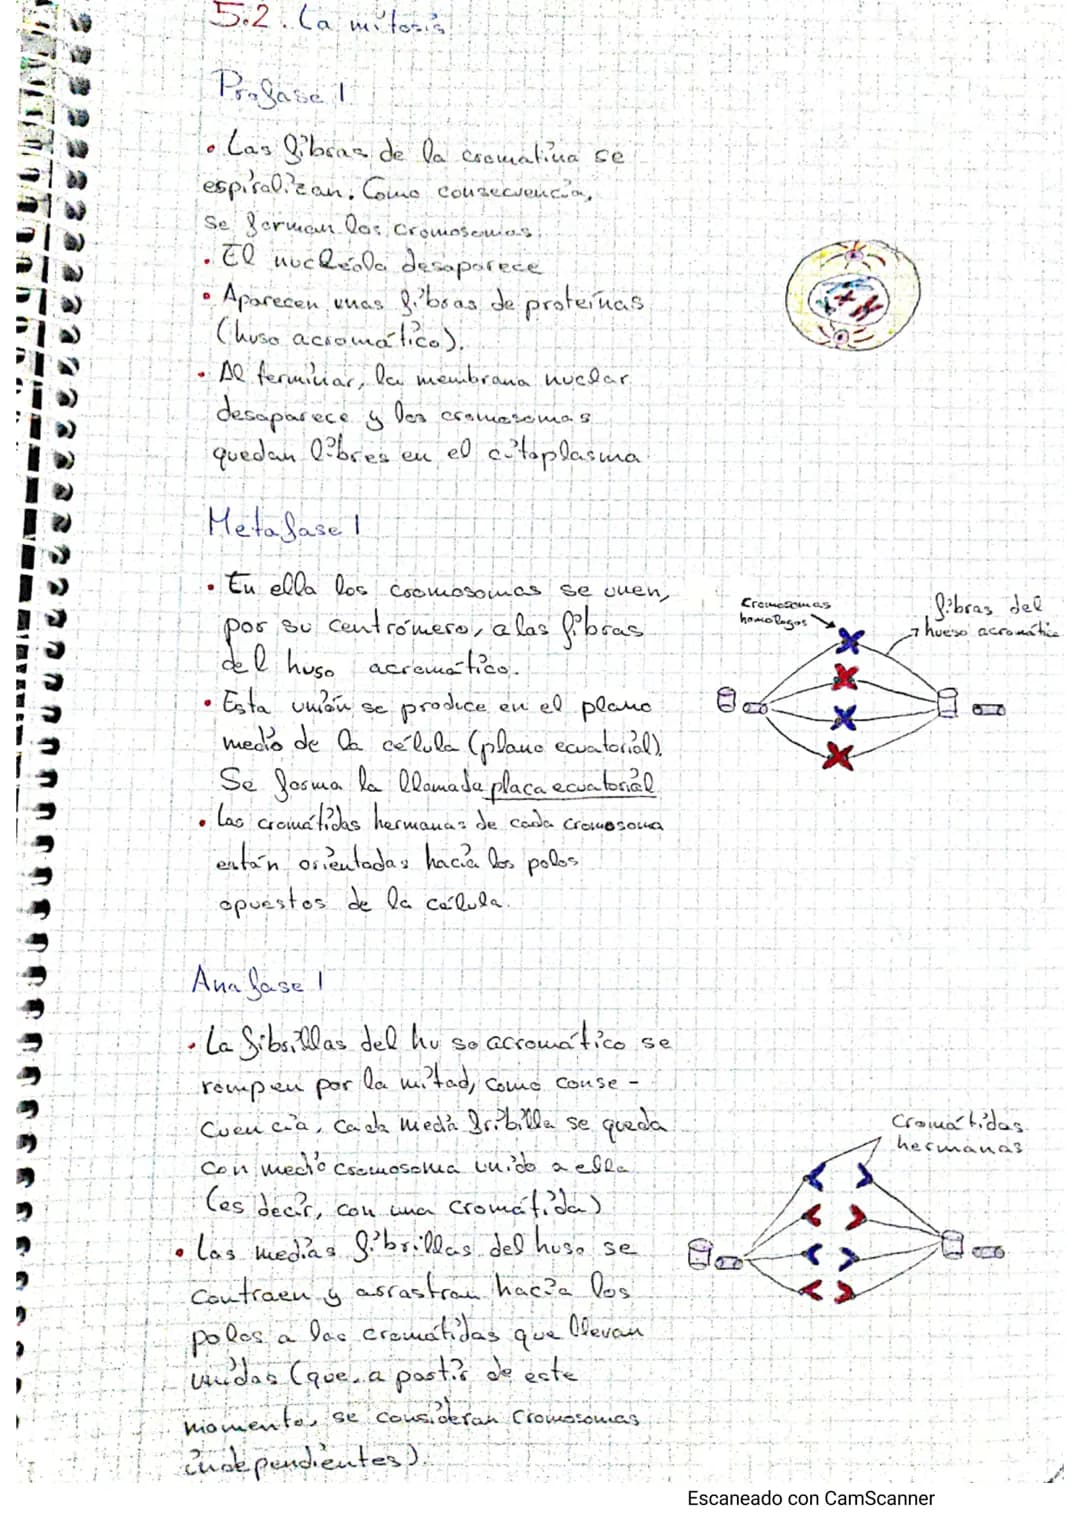 5.2. La mitosis
Profase 1
• Las fibras de la cromatina se
espiralizan. Como consecuencia,
se forman los cromosomas.
• El nucleolo desaparece
• Aparecen unas fibras de proteínas
(huso acromático).
• Al terminar, la membrana nuclar
desaparece y los cromosomas
quedan libres en el citoplasma
Metafase 1
• En ella los cromosomas se unen,
por su centrómero, a las fibras
del huso acromático.
• Esta unión se produce en el plano
medio de la célula (plano ecuatorial).
Se forma la llamada placa ecuatorial
• Las cromátidas hermanas de cada cromosoma
están orientadas hacia los polos
opuestos de la célula.
Cromosomas
homologos
fibras del
hueso acromático
Anafase 1
• La fibrillas del huso acromático se
rompen por la mitad, como conse-
cuencia, cada media fribilla se queda
con medio cromosoma unido a ella
(es decir, con una cromátida)
• Las medias fibrillas del huso se
contraen y arrastran hacia los
polos a las cromátidas que llevan
unidas (que, a partir de este
momento, se consideran cromosomas
independientes).
Cromátidas
hermanas
Escaneado con CamScanner